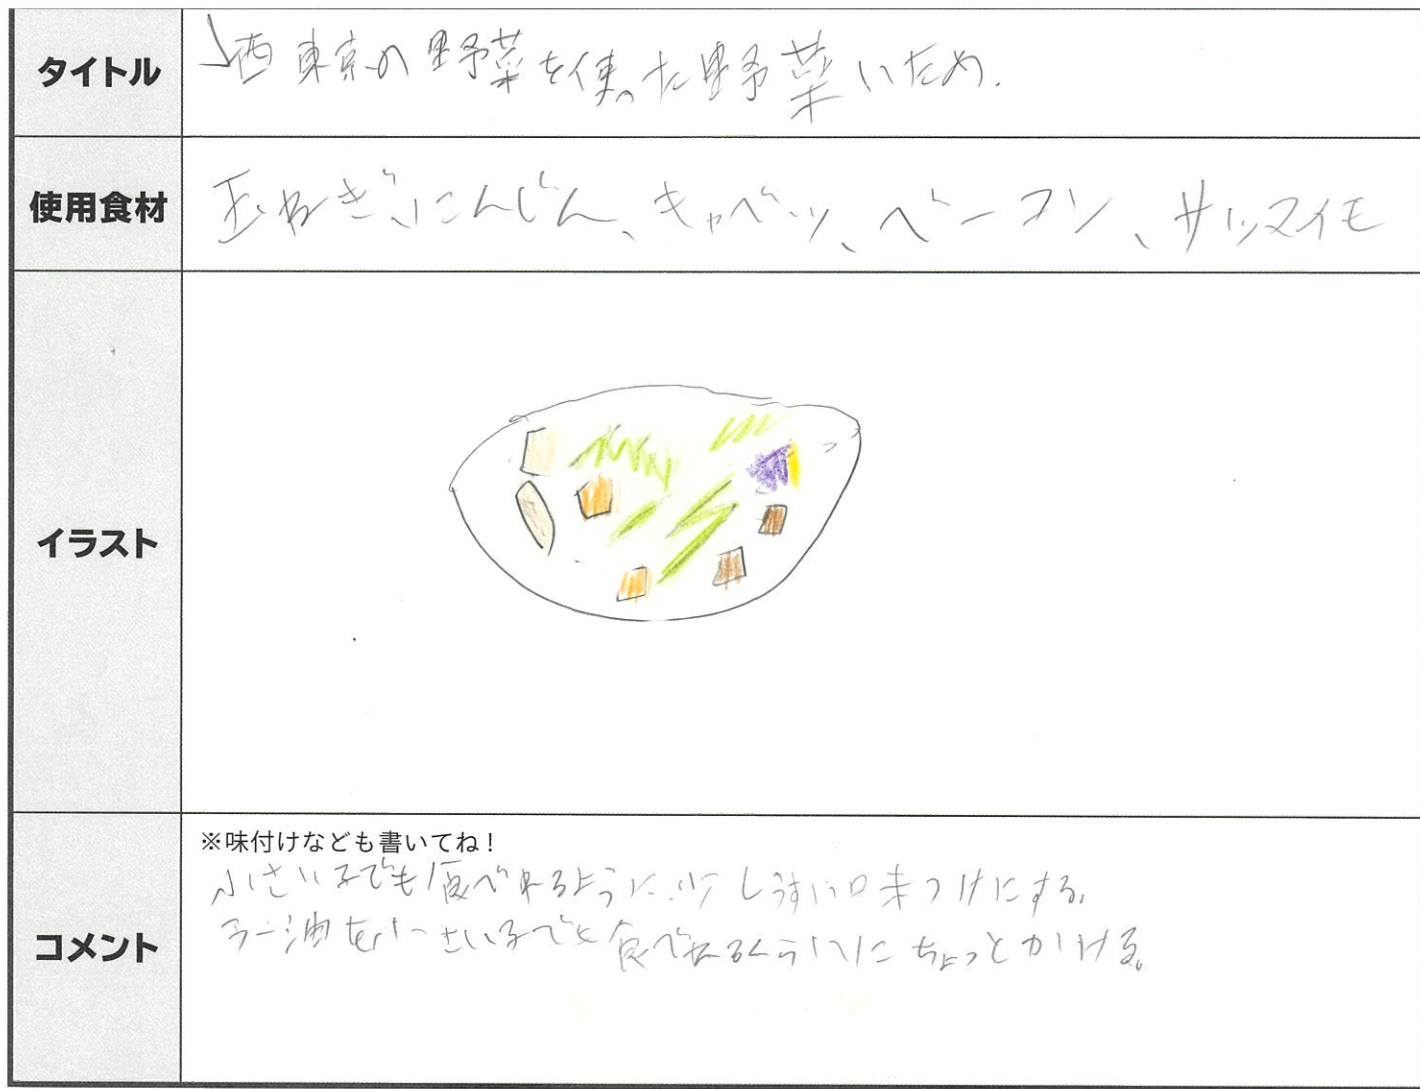 タイトル
西東京の野菜を使った野菜いため.
使用食材
玉ねぎ、にんじん、キャベツ、ベーコン、サツマイモ
イラスト
コメント
※味付けなども書いてね！
小さい子でも食べれるように少しうすい味つけにする。
ラー油を小さい子でも食べれるくらいにちょっとかける。